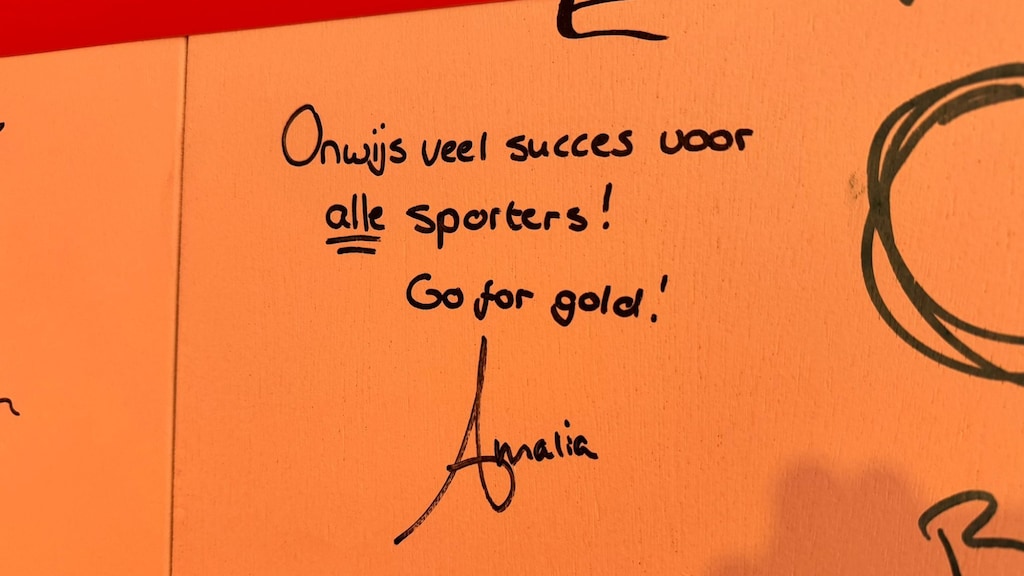 Onwijs veel succes voor
alle sporters!
Go for gold!
Amalia